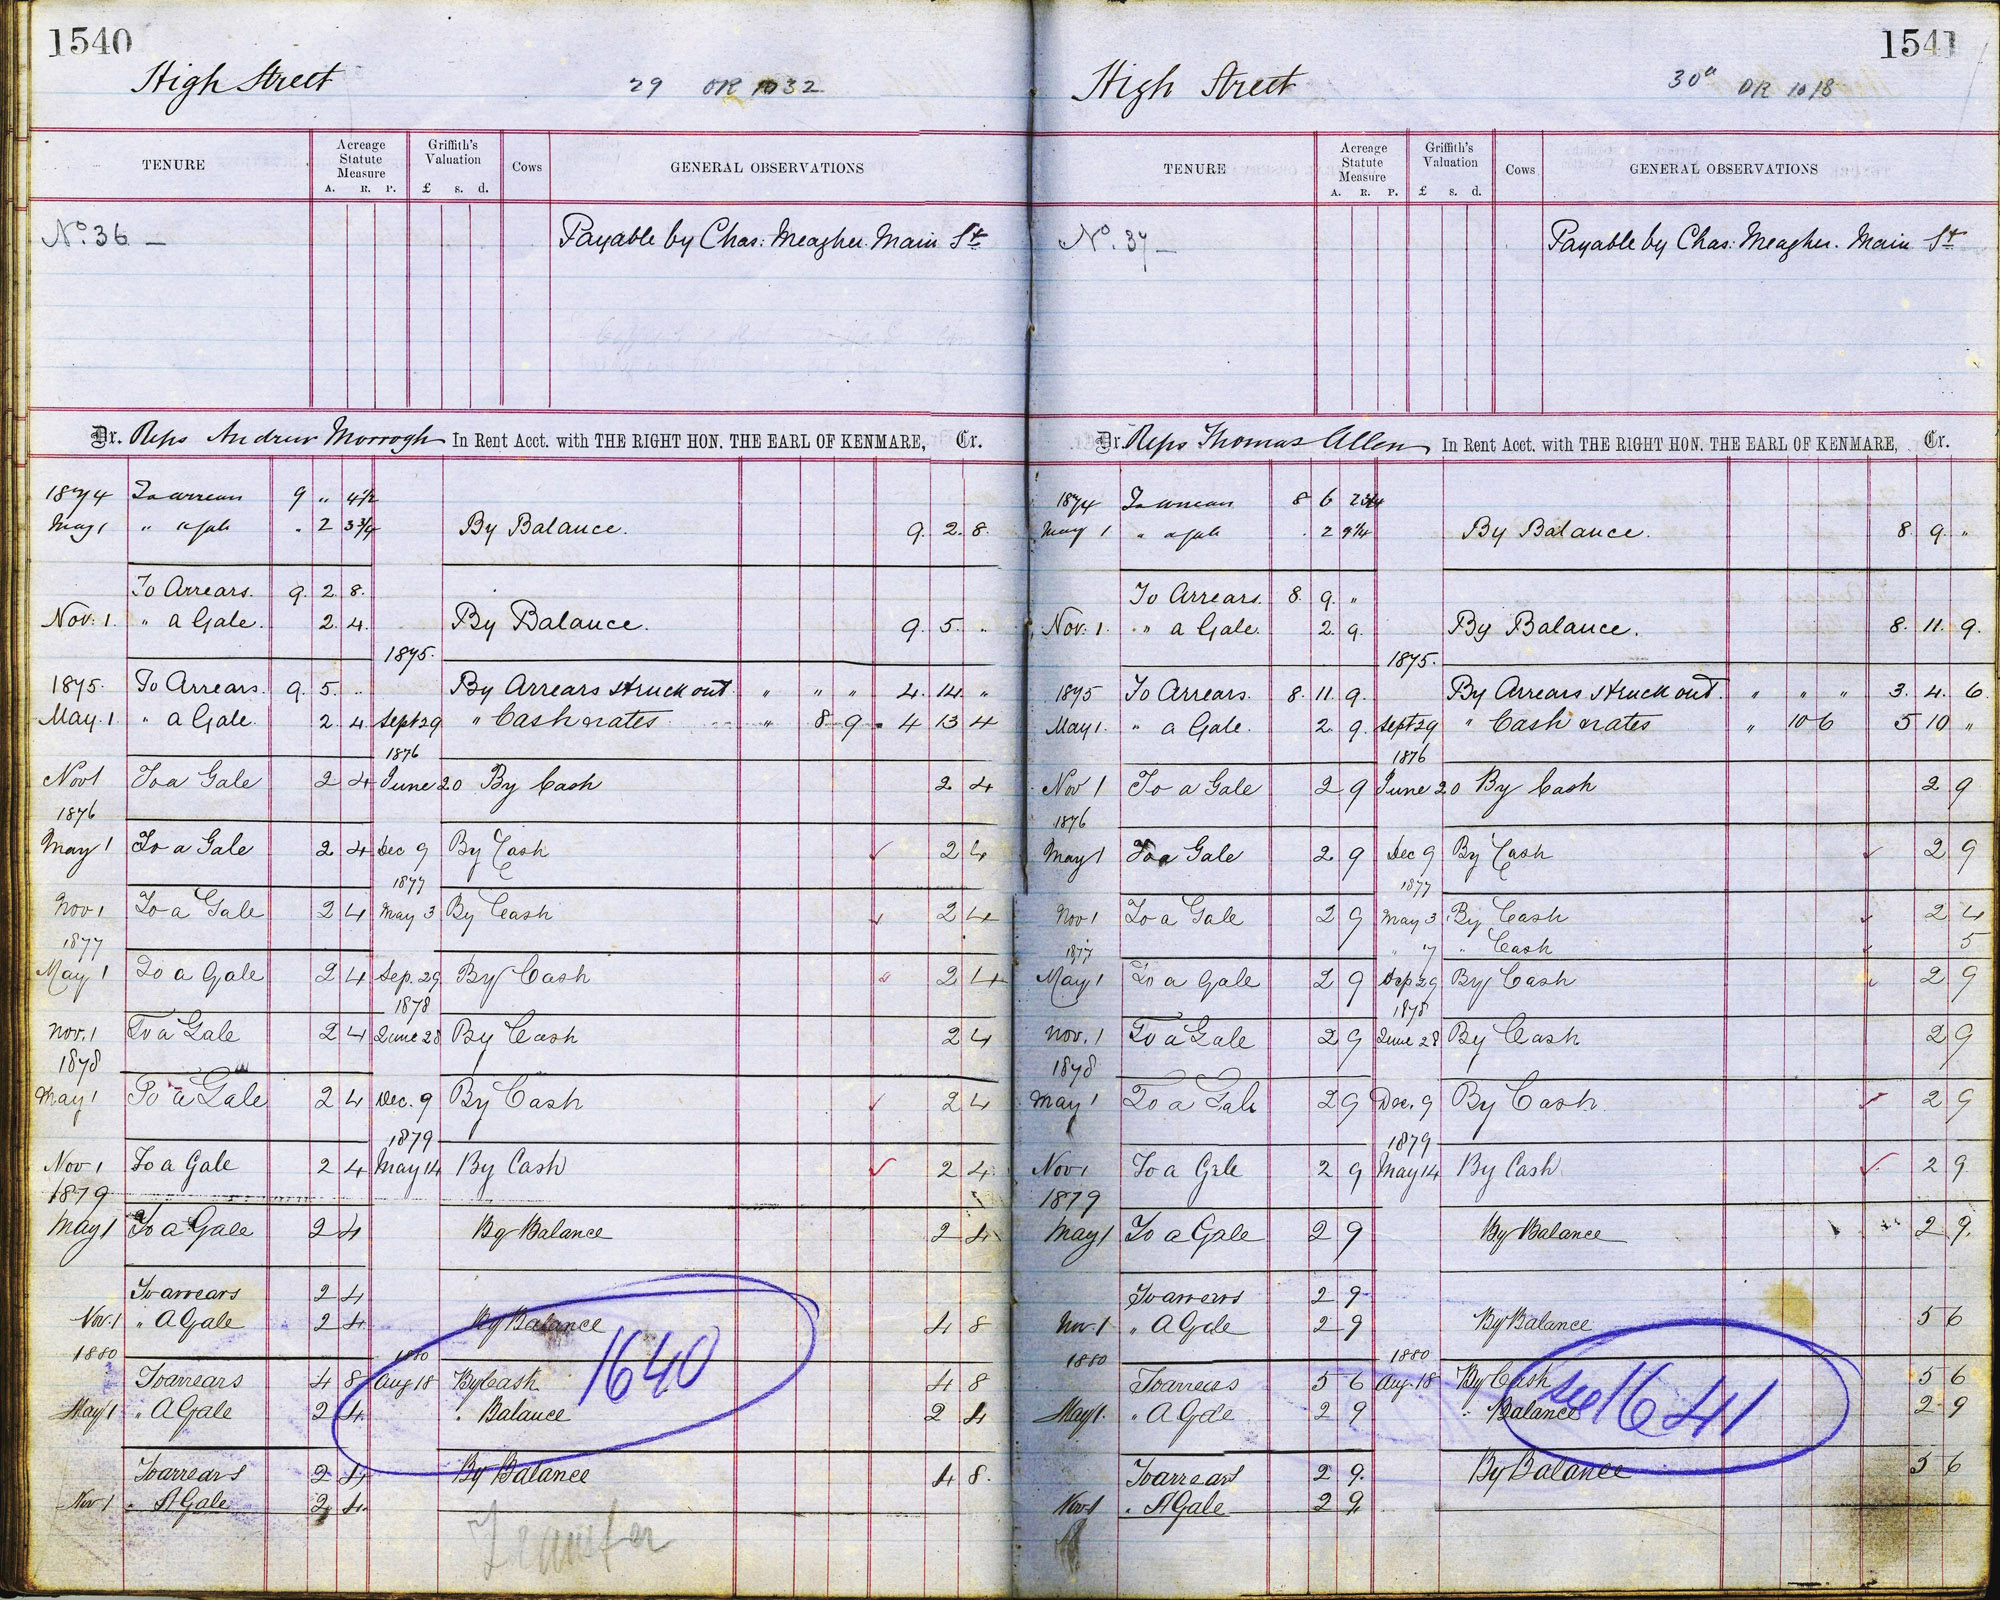 1540
High Street 29 OR 1032
TENURE
Acreage Statute Measure
A. R. P.
Griffith's Valuation
£ s. d.
Cows
GENERAL OBSERVATIONS
No. 36 –
Payable by Chas: Meagher Main St
Dr. Reps Andrew Morrogh In Rent Acct. with THE RIGHT HON. THE EARL OF KENMARE, Cr.
1874 To arrears 9 " 4½
May 1 " a Gale " 2 3¾ By Balance. 9. 2. 8.
To Arrears. 9. 2. 8.
Nov. 1. " a Gale. 2. 4. By Balance. 9. 5. "
1875.
1875. To Arrears. 9. 5. " By Arrears struck out " " " 4. 14. "
May. 1 " a Gale. 2. 4 Sept 29 " Cash & rates " 8 9 4 13 4
1876
Nov 1 To a Gale 2 4 June 20 By Cash 2 4
1876
May 1 To a Gale 2 4 Dec 9 By Cash 2 4
1877
Nov 1 To a Gale 2 4 May 3 By Cash 2 4
1877
May 1 To a Gale 2 4 Sep. 29 By Cash 2 4
1878
Nov. 1 To a Gale 2 4 June 28 By Cash 2 4
1878
May 1 To a Gale 2 4 Dec. 9 By Cash 2 4
1879
Nov 1 To a Gale 2 4 May 14 By Cash 2 4
1879
May 1 To a Gale 2 4 By Balance 2 4
To arrears 2 4
Nov. 1 " A Gale 2 4 By Balance 4 8
1640
1880 1880
To arrears 4 8 Aug 18 By Cash 4 8
May 1 " A Gale 2 4 " Balance 2 4
To arrears 2 4 By Balance 4 8.
Nov 1 " A Gale 2 4
Transfer
1541
High Street 30a OR 1018
TENURE
Acreage Statute Measure
A. R. P.
Griffith's Valuation
£ s. d.
Cows
GENERAL OBSERVATIONS
No. 37 –
Payable by Chas: Meagher. Main St
Dr. Reps Thomas Allen In Rent Acct. with THE RIGHT HON. THE EARL OF KENMARE, Cr.
1874 To arrears 8 6
May 1 " a Gale . 2 9¼ By Balance. 8. 9. "
To Arrears. 8. 9. "
Nov. 1. " a Gale. 2. 9. By Balance. 8. 11. 9.
1875.
1875 To Arrears. 8. 11. 9. By Arrears struck out. " " " 3. 4. 6
May 1. " a Gale. 2. 9. Sept 29 " Cash & rates " 10 6 5 10 "
1876
Nov 1 To a Gale 2 9 June 20 By Cash 2 9
1876
May 1 To a Gale 2 9 Dec 9 By Cash 2 9
1877
Nov 1 To a Gale 2 9 May 3 By Cash 2 4
1877 " 7 " Cash 5
May 1 To a Gale 2 9 Sep 29 By Cash 2 9
1878
Nov. 1 To a Gale 2 9 June 28 By Cash 2 9
1878
May 1 To a Gale 2 9 Dec. 9 By Cash 2 9
1879
Nov 1 To a Gale 2 9 May 14 By Cash 2 9
1879
May 1 To a Gale 2 9 By Balance 2 9.
To arrears 2 9
Nov. 1 " A Gale 2 9 By Balance 5 6
1880 1880
To arrears 5 6 Aug. 18 By Cash 5 6
see 1641
May 1. " A Gale 2 9 " Balance 2 9
To arrears 2 9. By Balance 5 6
Nov. 1 " A Gale 2 9